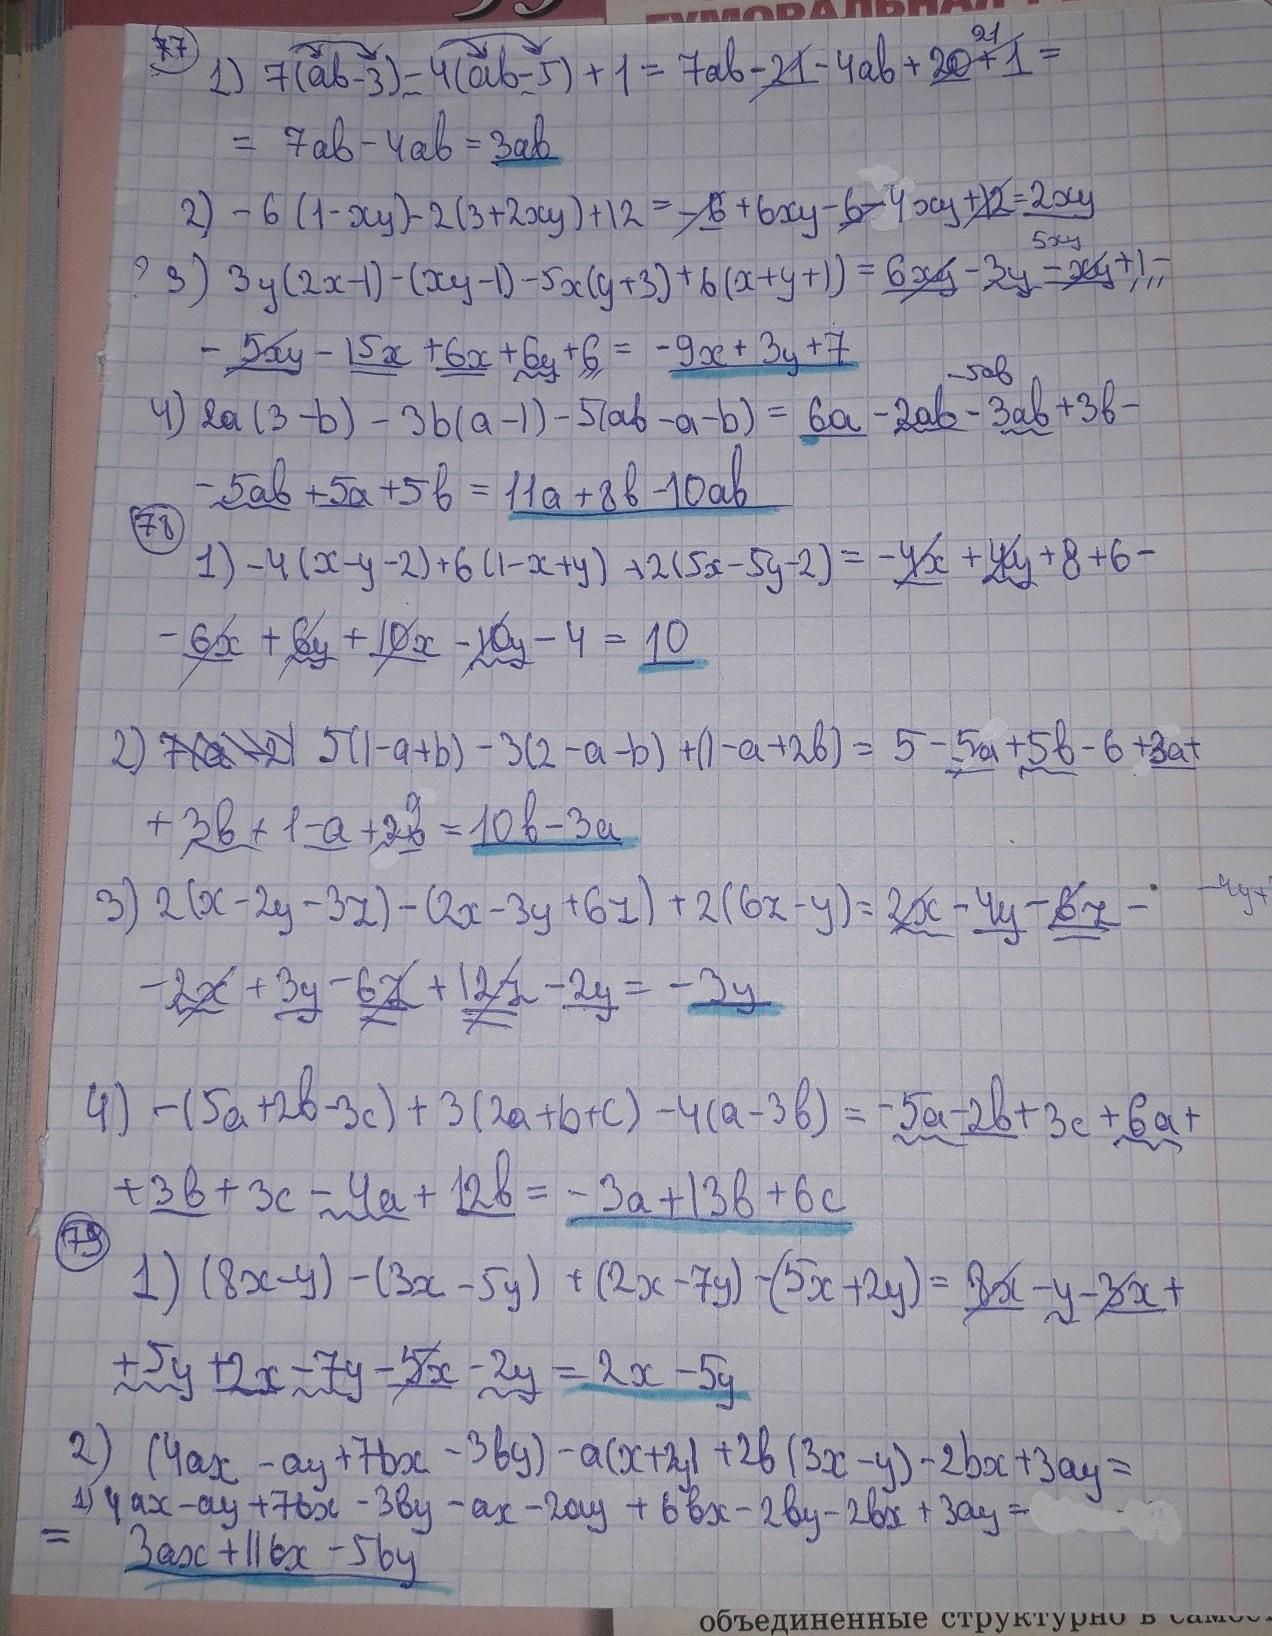 ГУМОРАЛЬНАЯ
77
21
1) 7(ab-3)-4(ab-5)+1=7ab-21-4ab+20+1=
= 7ab-4ab=3ab
2) -6(1-xy)-2(3+2xy)+12=-6+6xy-6-4xy+12=2xy
5xy
? 3) 3y(2x-1)-(xy-1)-5x(y+3)+6(x+y+1)=6xy-3y-xy+1-
-5xy-15x+6x+6y+6=-9x+3y+7
-5ab
4) 2a(3-b)-3b(a-1)-5(ab-a-b)=6a-2ab-3ab+3b-
-5ab+5a+5b=11a+8b-10ab
78
1) -4(x-y-2)+6(1-x+y)+2(5x-5y-2)=-4x+4y+8+6-
-6x+6y+10x-10y-4=10
2) 5(1-a+b)-3(2-a-b)+(1-a+2b)=5-5a+5b-6+3a+
+3b+1-a+2b=10b-3a
3) 2(x-2y-3z)-(2x-3y+6z)+2(6z-y)=2x-4y-6z-
-2x+3y-6z+12z-2y=-3y
4) -(5a+2b-3c)+3(2a+b+c)-4(a-3b)=-5a-2b+3c+6a+
+3b+3c-4a+12b=-3a+13b+6c
79
1) (8x-y)-(3x-5y)+(2x-7y)-(5x+2y)=8x-y-3x+
+5y+2x-7y-5x-2y=2x-5y
2) (4ax-ay+7bx-3by)-a(x+2y)+2b(3x-y)-2bx+3ay=
4ax-ay+7bx-3by-ax-2ay+6bx-2by-2bx+3ay=
= 3ax+11bx-5by
объединенные структурно в